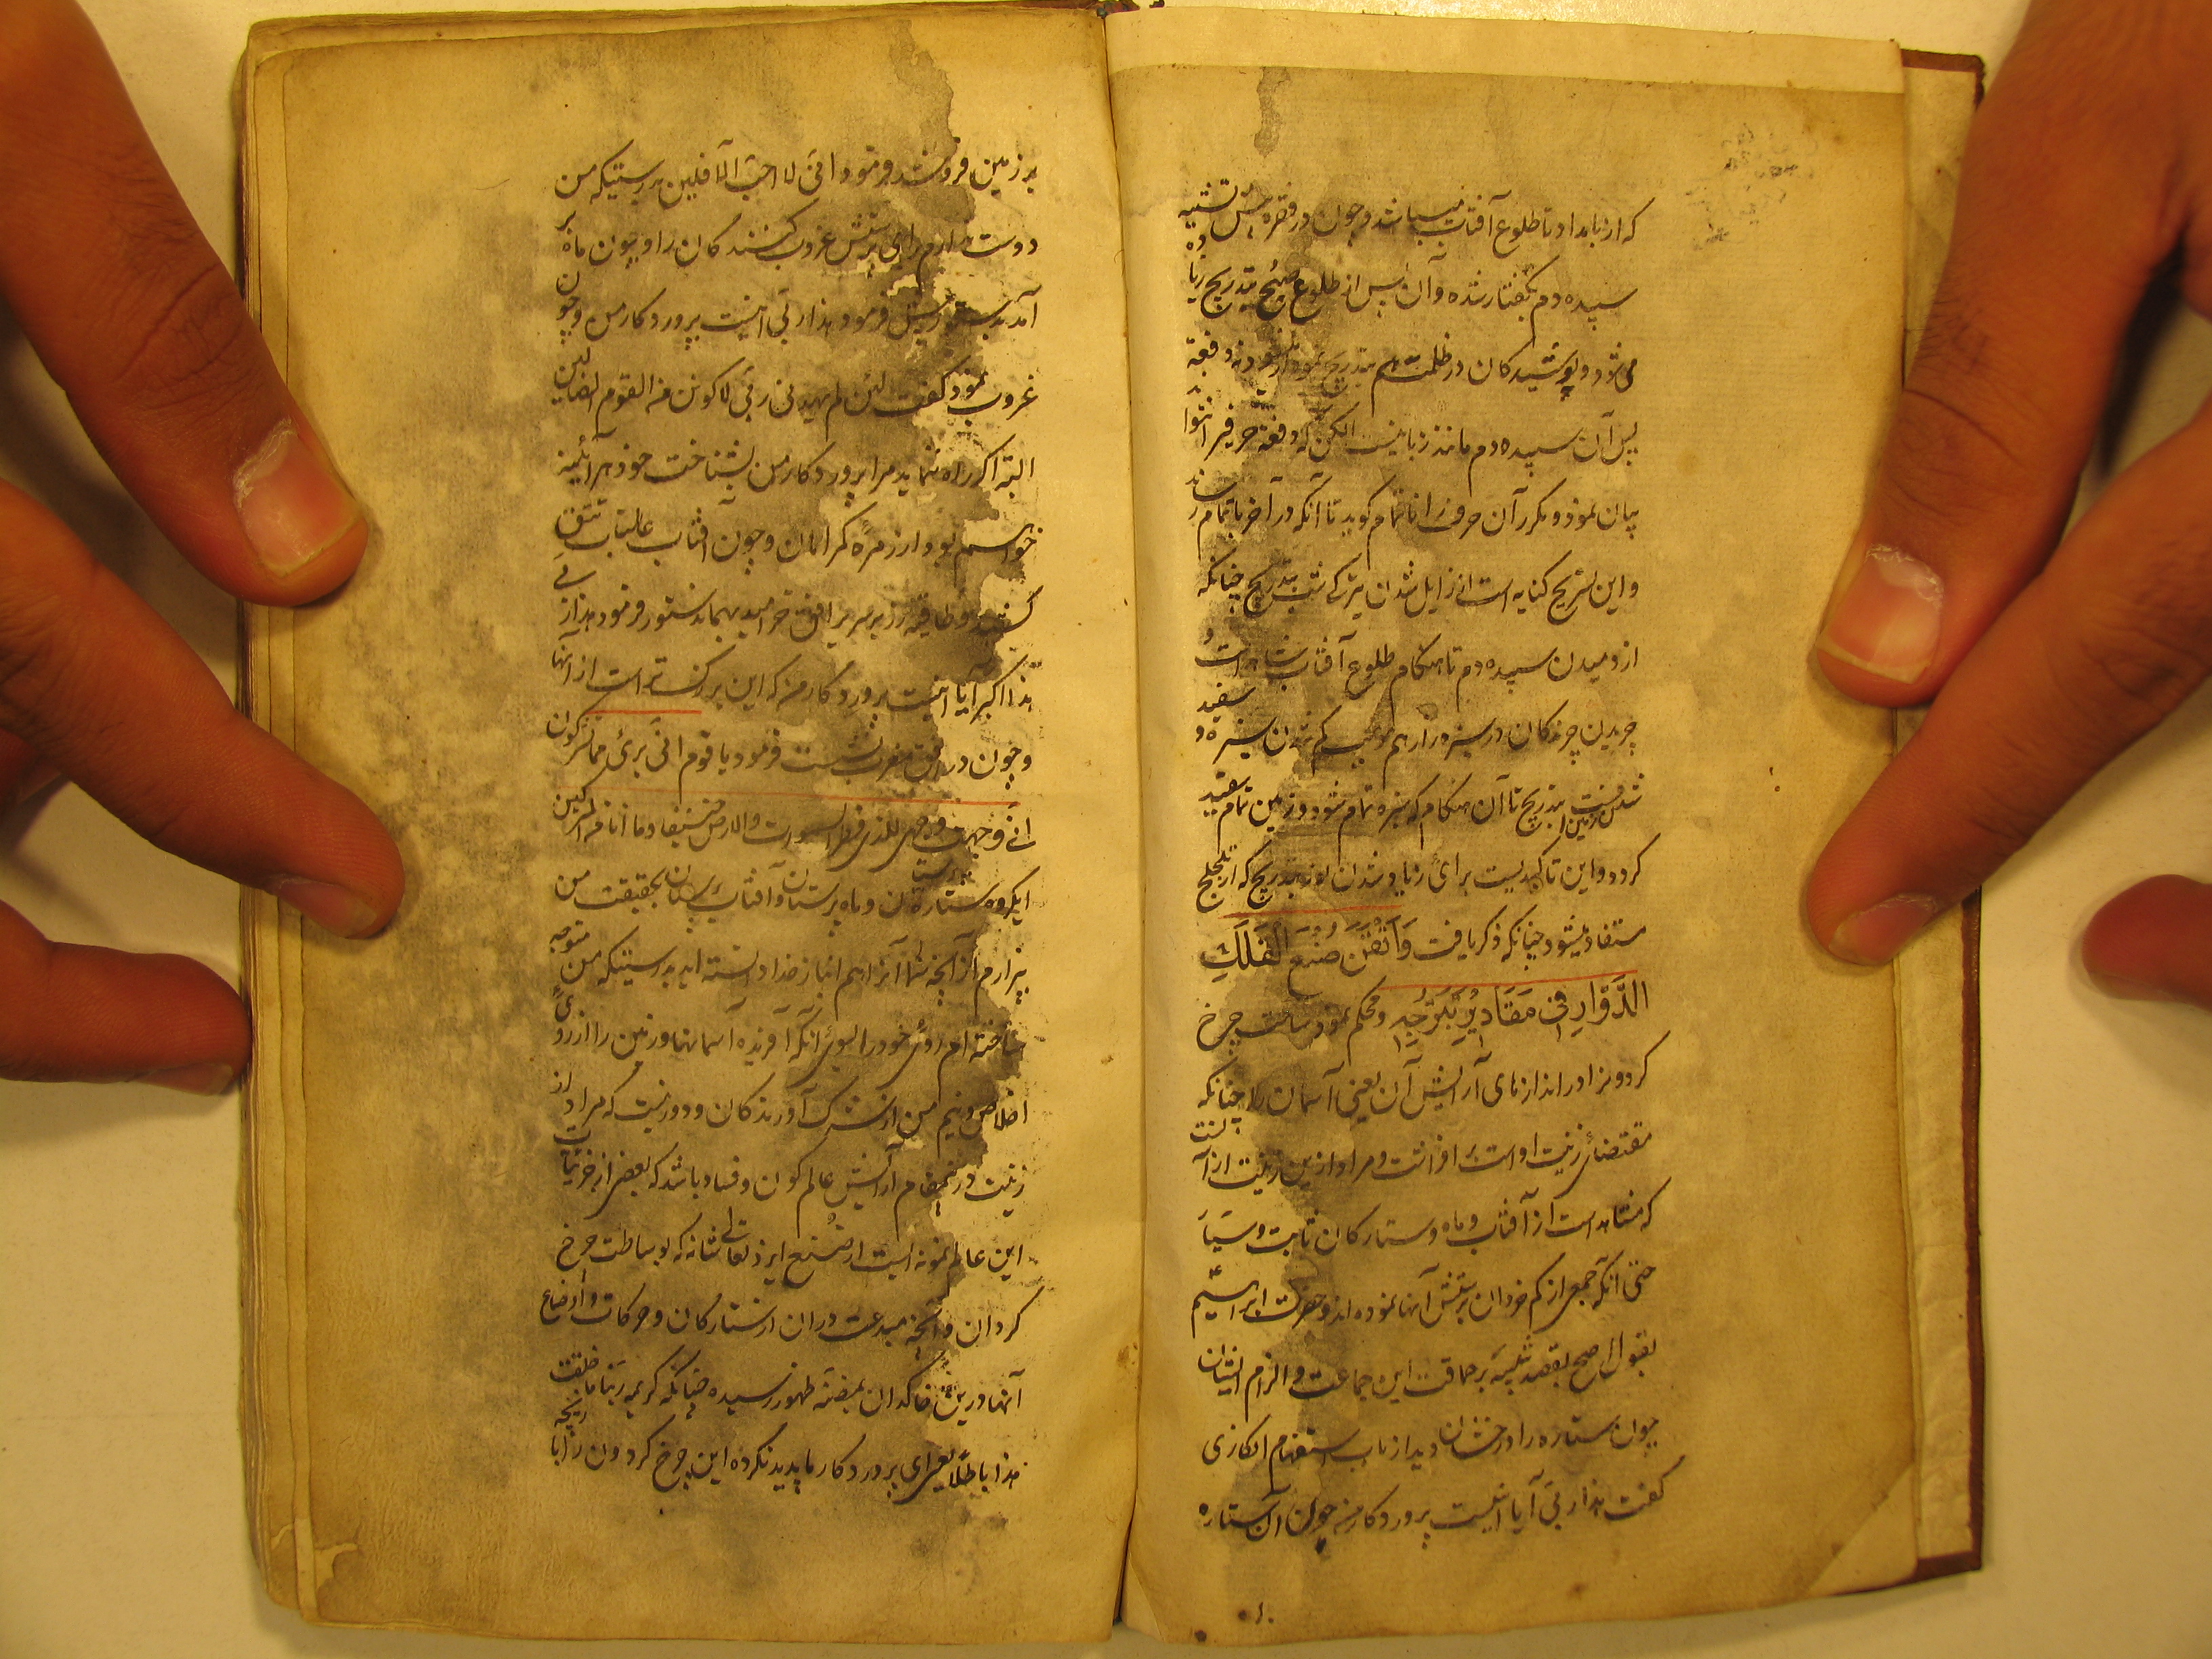 که از بامداد تا طلوع آفتاب میباشد و چون در فقره پیش تشبیه
سپیده دم بگفتار شده و آن پس از طلوع صبح بتدریج زیاده
می شود و پوشیدگان در ظلمت هم بتدریج نمودار شود نه دفعة
پس آن سپیده دم مانند زبانیست الکن که دفعة حرفیرا نتواند
بیان نمود و مکرر آن حرف را ناتمام گوید تا آنکه در آخر باتمام رساند
و این تسریح کنایه است از زایل شدن تیرگی شب بتدریج چنانکه
از دمیدن سپیده دم تا هنگام طلوع آفتاب مشاهد است و
چریدن چرندگان در سبزه زار هم موجب کم شدن سبزه و سفید
شدن زمین است بتدریج تا آن هنگام که سبزه تمام شود و زمین تمام سفید
کردد و این تاکیدیست برای زیاد شدن نور بتدریج که از تلجلج
مستفاد میشود چنانکه ذکر یافت وَاَتْقَنَ صُنْعَ الْفَلَكِ
الدَّوَّارِ فِي مَقَادِيرِ تَبَرُّجِهِ و محکم نمود ساخت چرخ
کردونرا در اندازهای آرایش آن یعنی آسمان را چنانکه
مقتضای زینت او است افراشت و مراد ازین زینت ازآنست
که مشاهد است از آفتاب و ماه و ستارکان ثابت و سیار
حتی آنکه جمعی از کم خردان پرستش آنها نموده اند و حضرت ابراهیم
بقول اصح بقصد تنبیه بر حماقت این جماعت و الزام ایشان
چون ستاره را درخشان دید از باب استفهام انکاری
کفت هذا ربی آیا اینست پروردکار من چون آن ستاره
بر زمین فرو شد فرمود انی لا احب الآفلین بدرستیکه من
دوست ندارم برای پرستش غروب کنندکان را و چون ماه بر
آمد بدستور پیش فرمود هذا ربی اینست پروردکار من و چون
غروب نمود کفت لئن لم یهدنی ربی لاکونن من القوم الضالین
البته اکر راه ننماید مرا پروردکار من بشناخت خود هرآئینه
خواهم بود از زمره کمراهان و چون آفتاب عالمتاب تتق
کشید و طاقیه زر بر سر بر افق خرامید بهمان دستور فرمود هذا ربی
هذا اکبر آیا اینست پروردکار من که این بزرکتر است از آنها
و چون در افق مغرب نشست فرمود یا قوم انی بریء مما تشرکون
انی وجهت وجهی للذی فطر السموات والارض حنیفا وما انا من المشرکین
ایکروه ستاره پرستان و ماه پرستان و آفتاب پرستان بحقیقت من
بیزارم از آنچه شما آنرا هم انباز خدا دانسته اید بدرستیکه من متوجه
ساخته ام روی خود را بسوی آنکه آفریده آسمانها و زمین را از روی
اخلاص و نیم من از شرک آورندکان و دور نیست که مراد از
زینت درینمقام آرایش عالم کون و فساد باشد که بعضی از جزئیات
این عالم نمونه ایست از صنع ایزد تعالی شانه که بوساطت چرخ
کردان و آنچه مبدعت در آن از ستارکان و حرکات و اوضاع
آنها درین خاکدان بمیضه ظهور رسیده چنانکه کریمه ربنا ما خلقت
هذا باطلا یعنی ای پروردکار ما پدید نکرده این چرخ کردون را